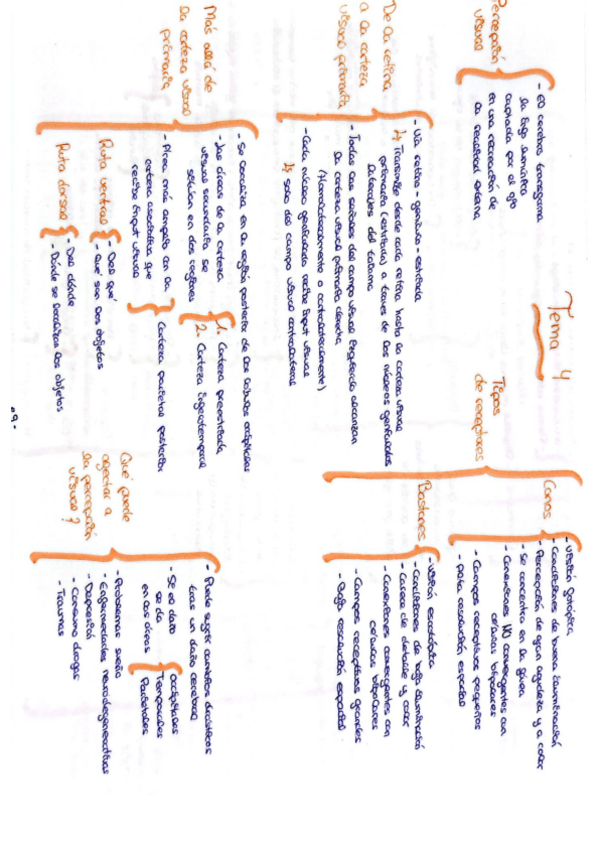 Tema 4
Percepción
visual
- El cerebro transforma
la luz lumínica
captada por el ojo
en una recreación de
la realidad externa
Tipos
de receptores
Conos
- Visión fotópica
- Condiciones de buena iluminación
- Percepción de gran agudeza y a color
- Se concentra en la fóvea
- Conexiones NO convergentes con
células bipolares
- Campos receptivos pequeños
- Alta resolución espacial
Bastones
- Visión escotópica
- Condiciones de baja iluminación
- Carece de detalle y color
- Conexiones convergentes con
células bipolares
- Campos receptivos grandes
- Baja resolución espacial
De la retina
a la corteza
visual primaria
- Vía retina - geniculo - estriada
↳ Transmite desde cada retina hasta la corteza visual
primaria (estriada) a través de los núcleos geniculados
laterales del tálamo
- Todas las señales del campo visual izquierdo alcanzan
la corteza visual primaria derecha
(Homolateralmente o contralateralmente)
- Cada núcleo geniculado recibe input visual
↳ solo del campo visual contralateral
Más allá de
la corteza visual
primaria
- Se localiza en la región posterior de los lóbulos occipitales
- Las áreas de la corteza
visual secundaria se
sitúan en dos regiones
1. Corteza preestriada
2. Corteza inferotemporal
- Área más amplia en la
corteza asociativa que
recibe input visual
Corteza parietal posterior
Ruta ventral
- Del qué
- Qué son los objetos
Ruta dorsal
- Del dónde
- Dónde se localizan los objetos
Qué puede
afectar a
la percepción
visual?
- Puede sufrir cambios drásticos
tras un daño cerebral
- Si el daño
se da
en las áreas
occipitales
Temporales
Parietales
- Problemas sueño
- Enfermedades neurodegenerativas
- Depresión
- Consumo drogas
- Traumas